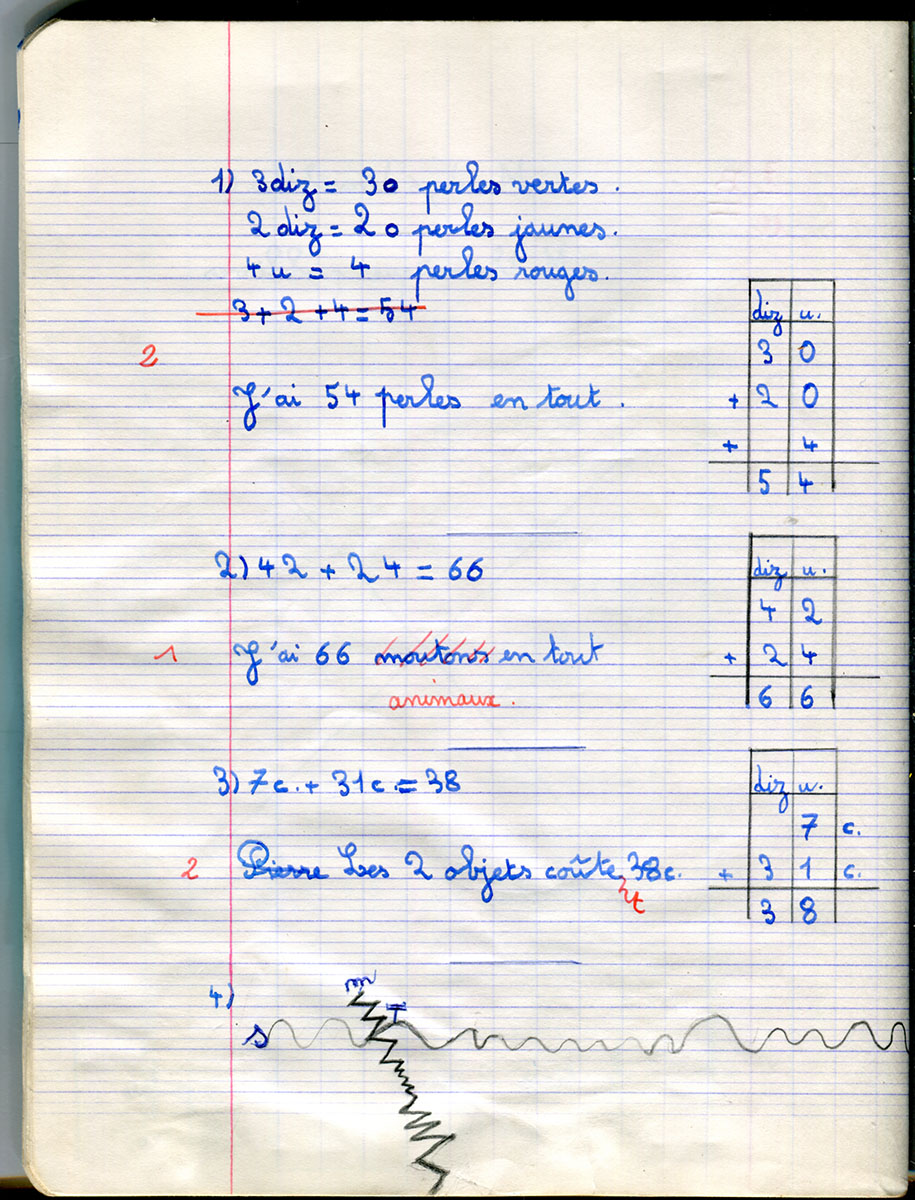 1) 3diz = 30 perles vertes.
2 diz = 20 perles jaunes.
4 u = 4 perles rouges.
3 + 2 + 4 = 54
2
J'ai 54 perles en tout.
diz u.
3 0
+ 2 0
+ 4
5 4
2) 42 + 24 = 66
1
J'ai 66 moutons en tout
animaux.
diz u.
4 2
+ 2 4
6 6
3) 7c. + 31c. = 38
2
Pierre Les 2 objets coûte 38c.
nt
diz u.
7 c.
+ 3 1 c.
3 8
4)
m
I
s